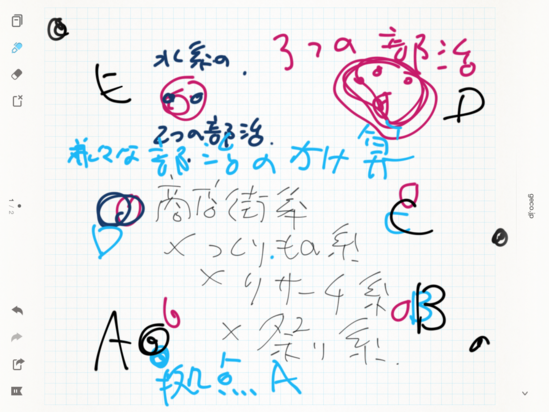 3つの部活
水系の
E
D
2つの部活
様々な部活のかけ算
商店街系
D
C
×つくりもの系
×リサーチ系
A
b
B
×祭り系
拠点A
1/2
geco.jp